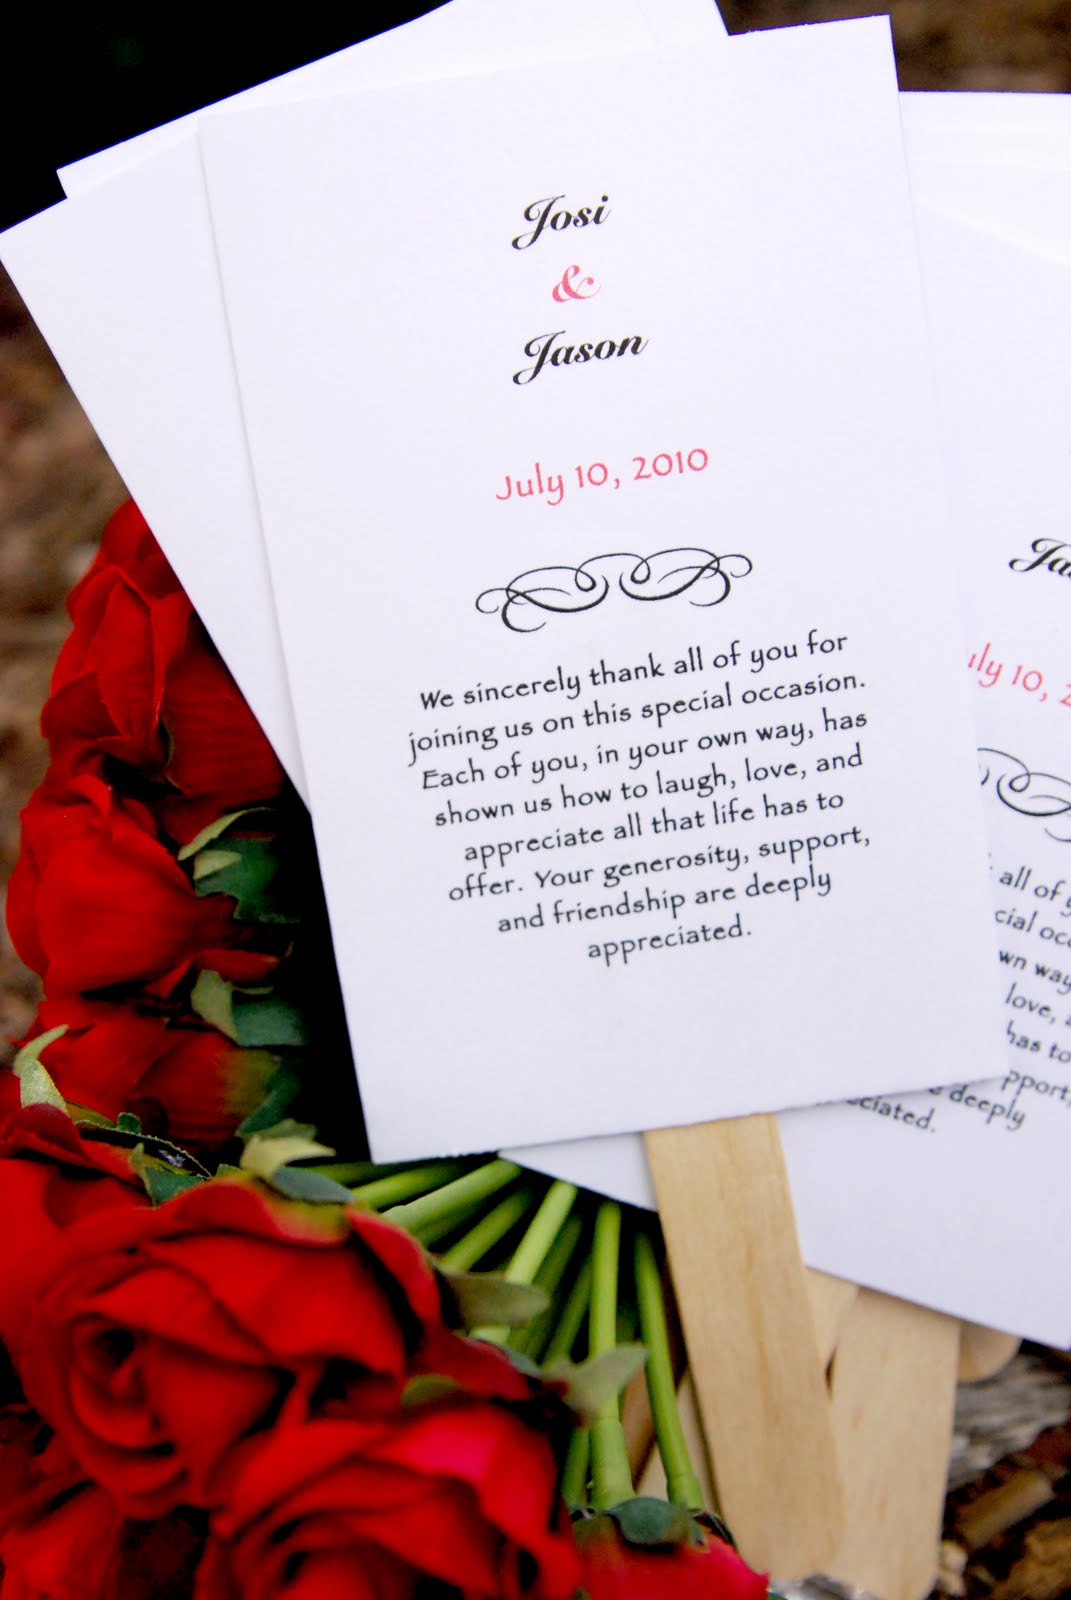 Josi
&
Jason
July 10, 2010
We sincerely thank all of you for
joining us on this special occasion.
Each of you, in your own way, has
shown us how to laugh, love, and
appreciate all that life has to
offer. Your generosity, support,
and friendship are deeply
appreciated.
Ja
uly 10, 2
all of y
cial occ
wn way
love, a
has to
pport,
e deeply
eciated.